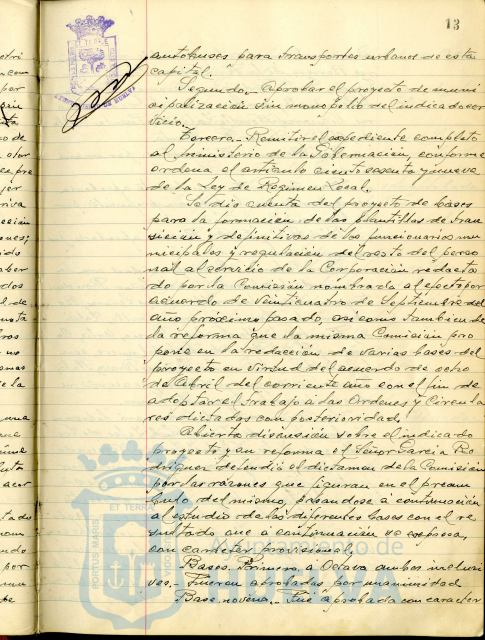 13
autobuses para transportes urbanos de esta
capital.
Segundo.- Aprobar el proyecto de muni
cipalización sin monopolio del indicado ser
vicio.
Tercero.- Remitir el expediente completo
al Ministerio de la Gobernación, conforme
ordena el artículo ciento sesenta y nueve
de la Ley de Régimen Local.
Se dió cuenta del proyecto de bases
para la formación de las plantillas de tran
sición y definitivas de los funcionarios mu
nicipales y regulación del resto del perso
nal al servicio de la Corporación redacta
do por la Comisión nombrada al efecto por
acuerdo de veinticuatro de Septiembre del
año próximo pasado, así como tambien de
la reforma que la misma Comisión pro
pone en la redacción de varias bases del
proyecto en virtud del acuerdo de ocho
de Abril del corriente año con el fin de
adaptar el trabajo a las Ordenes y Circula
res dictadas con posterioridad.
Abierta discusión sobre el indicado
proyecto y su reforma el Señor García Ro
dríguez defendió el dictamen de la Comisión
por las razones que figuran en el preám
bulo del mismo, pasandose a continuación
al estudio de las diferentes bases con el re
sultado que a continuación se expresa,
con carácter provisional.
Bases Primera a Octava ambas inclusi
ves.- Fueron aprobadas por unanimidad
Base novena.- Fué aprobada con carácter
PORTUS MARIS
ET TERRAE
Ayuntamiento de
HUELVA